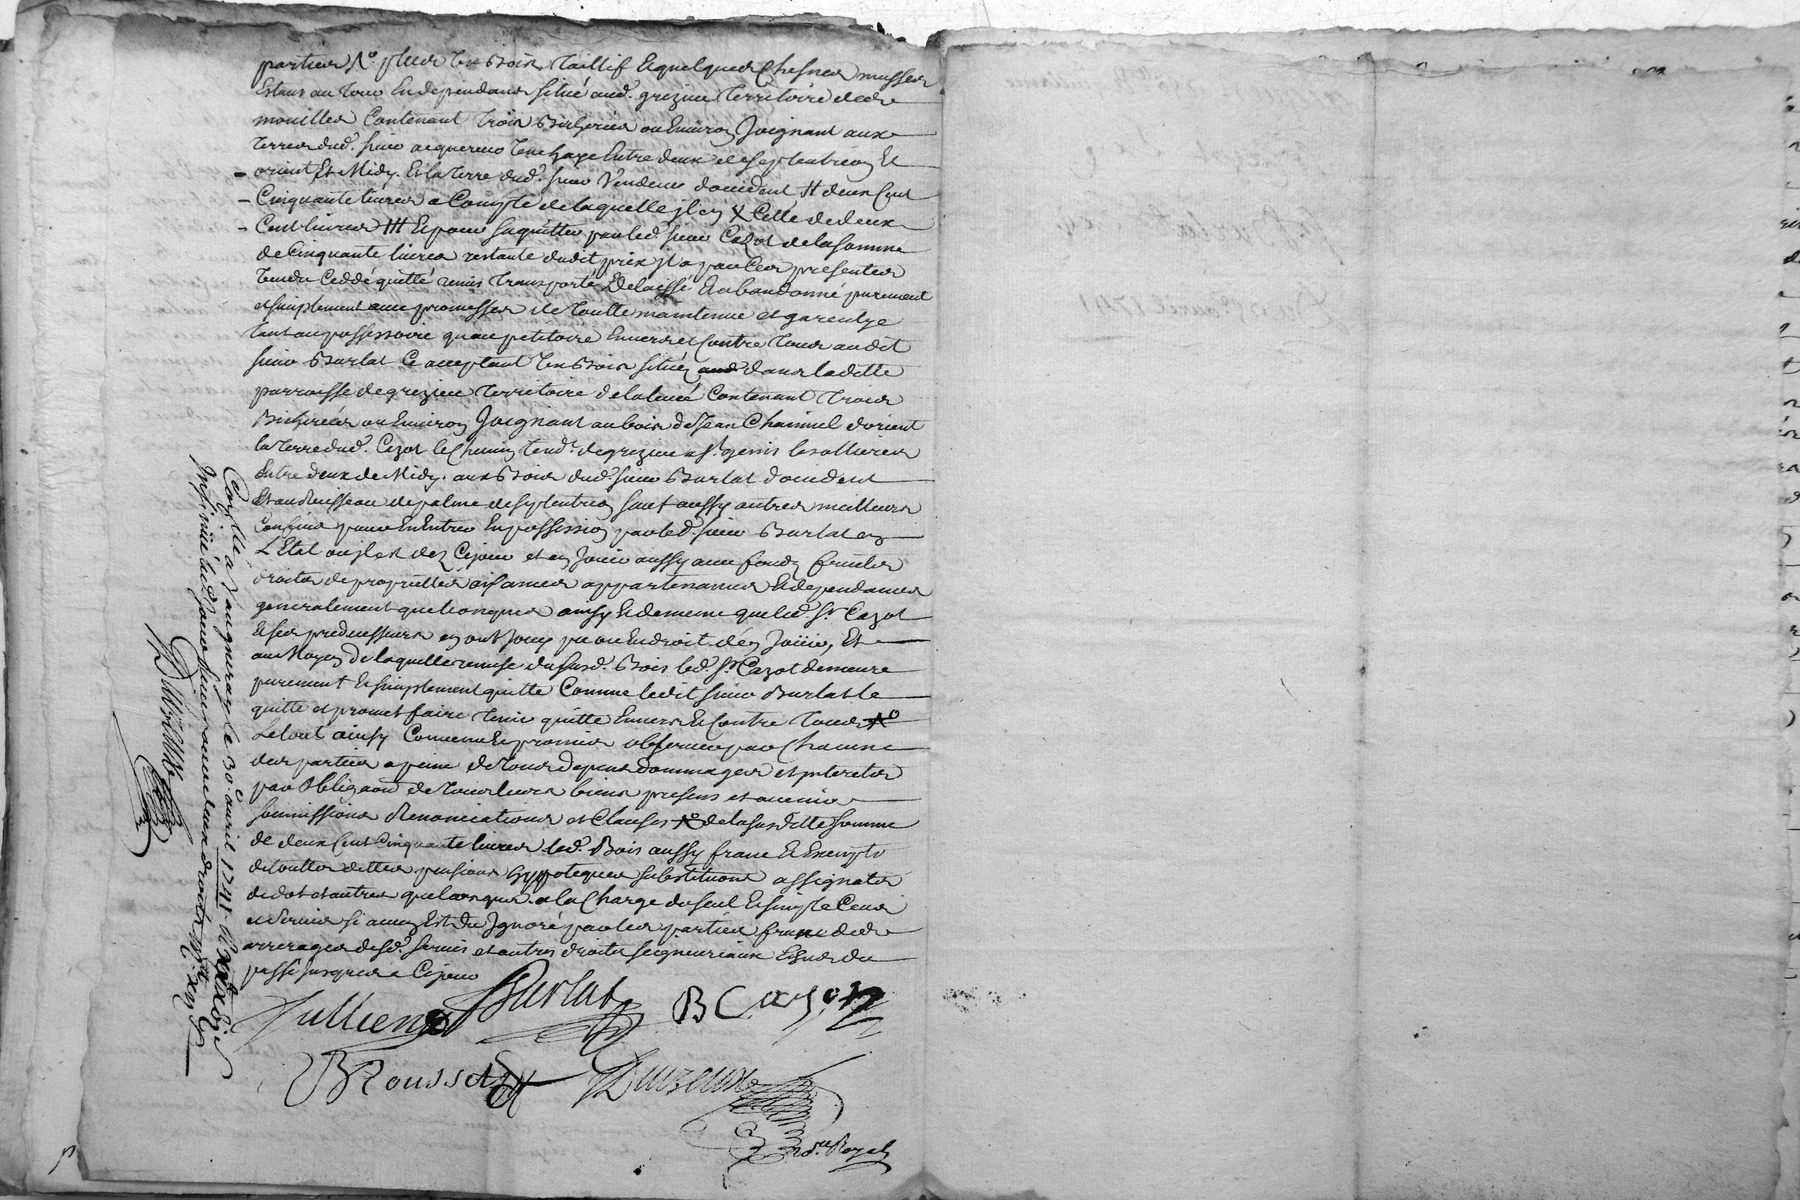 parties No plus un Bois Taillif et quelques Chesnes mussés
Estans au Tour et dependans situé aud. grezieu Territoire de
mouilles Contenant Trois Bicherées ou Environ Joignant aux
Terres dud. sieur acquereur une haye Entre deux de septentrion Et
orient Et Midy. Et la Terre dud. sieur Vendeur d'occident # deux Cent
Cinquante livres a Compte de laquelle il en X Celle de deux
Cent livres ## Et pour s'aquitter par led. sieur Cazot de la somme
de Cinquante livres restante dudit prix il a par Ces presentes
Vendu Ceddé quitté remis Transporté Delaissé Et abandonné purement
et simplement avec promesses de Toutte maintenue et garentye
Tant au possessoire qu'au petitoire Envers et Contre Tous audit
sieur Burlat Ce acceptant Un Bois situé dans laditte
parroisse de grezieu Territoire de Contenant Trois
Bicherées ou Environ Joignant au bois de Jean Chainiel d'orient
la Terre dud. Cazot le Chemin Tend.t de grezieu a St. genis les ollieres
Entre deux de Midy. aux Bois dud. sieur Burlat d'occident
Et au Ruisseau de de septentrion sauf aussy autres meilleurs
Confins pour En Entrer En possession par led. sieur Burlat en
L'Etat ou il est dez Cejour et en Jouir aussy avec fonds fruits
droits de proprietté aisances appartenances Et dependances
generalement quelconques ainsy Et de meme que led. Sr. Cazot
Et ses predecesseurs en ont Jouy pu ou En droit d'en Jouir, Et
au Moyen de laquelle remise du susd. Bois led. Sr. Cazot demeure
purement Et simplement quitte Comme ledit sieur Burlat le
quitte et promet faire Tenir quitte Envers Et Contre Tous No
Le tout ainsy Convenu Et promis observer par Chacune
des parties a peine de Tous depens dommages et interets
par obligaon de Tous leurs biens presens et avenir
soumissions Renonciations et Clauses No de la susditte somme
de deux Cent Cinquante livres led. Bois aussy franc Et Exempt
de touttes dettes pensions hyppoteques substitutions assignats
de dot et autres quelconques a la Charge du seul Et simple Cens
et servis si aucun Est Du Ignoré par les parties franc de
arrerages desd. servis et autres droits seigneuriaux Echus du
passé Jusques a Cejour
Jullien Burlat B Cazot
B Rousset
Nore Royal
Conllé a Vaugneray le 30e avril 1741